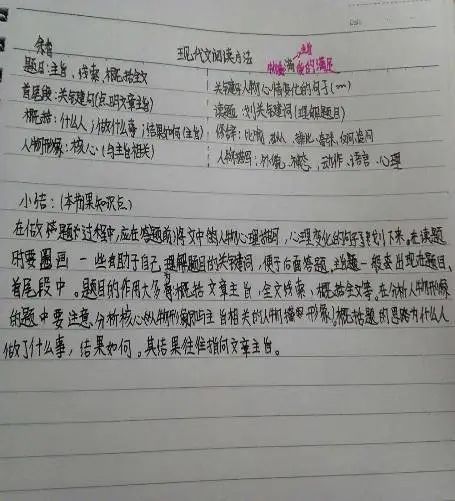 主旨
现代文阅读方法
题目：主旨、线索、概括全文
关键写人物心情变化的句子(……)
首尾段：关键句(点明文章主旨)
读题：划关键词(理解题目)
概括：什么人；做什么事；结果如何(主旨)
修辞：比喻 拟人 排比 夸张 设问 追问
人物形象：核心(与主旨相关)
人物描写：外貌、神态、动作、语言、心理
小结：(本节课知识点)
在做 答题的过程中，应在答题时将文中的人物心理描写，心理变化的句子划下来。在读题
时要圈画一些有助于自己理解题目的关键词，便于后面答题。主旨题一般会出现在题目、
首尾段中。题目的作用大多有概括文章主旨、全文线索、概括全文等。在分析人物形象
的题中要注意，分析核心人物形象即与主旨相关的人物形象。概括题的思路为什么人
做了什么事，结果如何。其结果往往指向文章主旨。